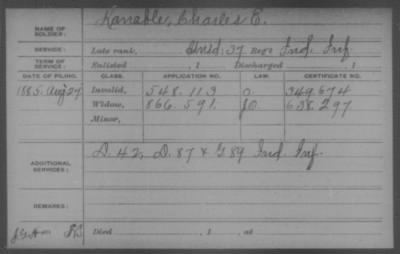 NAME OF SOLDIER: Kanable, Charles E.
SERVICE: Late rank, Unsd: 37 Regt Ind. Inf.
TERM OF SERVICE: Enlisted , 1 Discharged , 1
DATE OF FILING. CLASS. APPLICATION NO. LAW. CERTIFICATE NO.
1885. Aug 27 Invalid, 548.113 O. 349.674
Widow, 866.591. 638.297
Minor,
ADDITIONAL SERVICES: D. 42, D. 87 & G 89 Ind Inf.
REMARKS:
Died , 1 , at